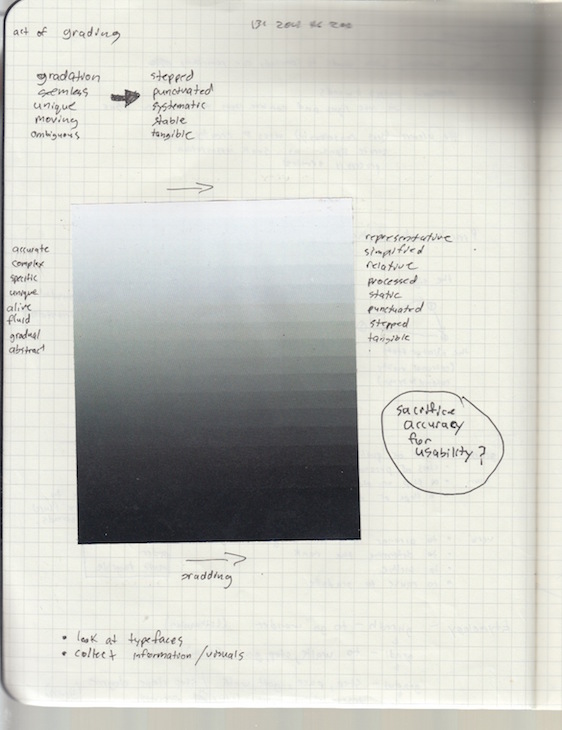 act of grading
gradation
semless
unique
moving
ambiguous
stepped
punctuated
systematic
stable
tangible
accurate
complex
specific
unique
alive
fluid
gradual
abstract
representative
simplified
relative
processed
static
punctuated
stepped
tangible
sacrifice
accuracy
for
usability?
gradding
• look at typefaces
• collect information/visuals